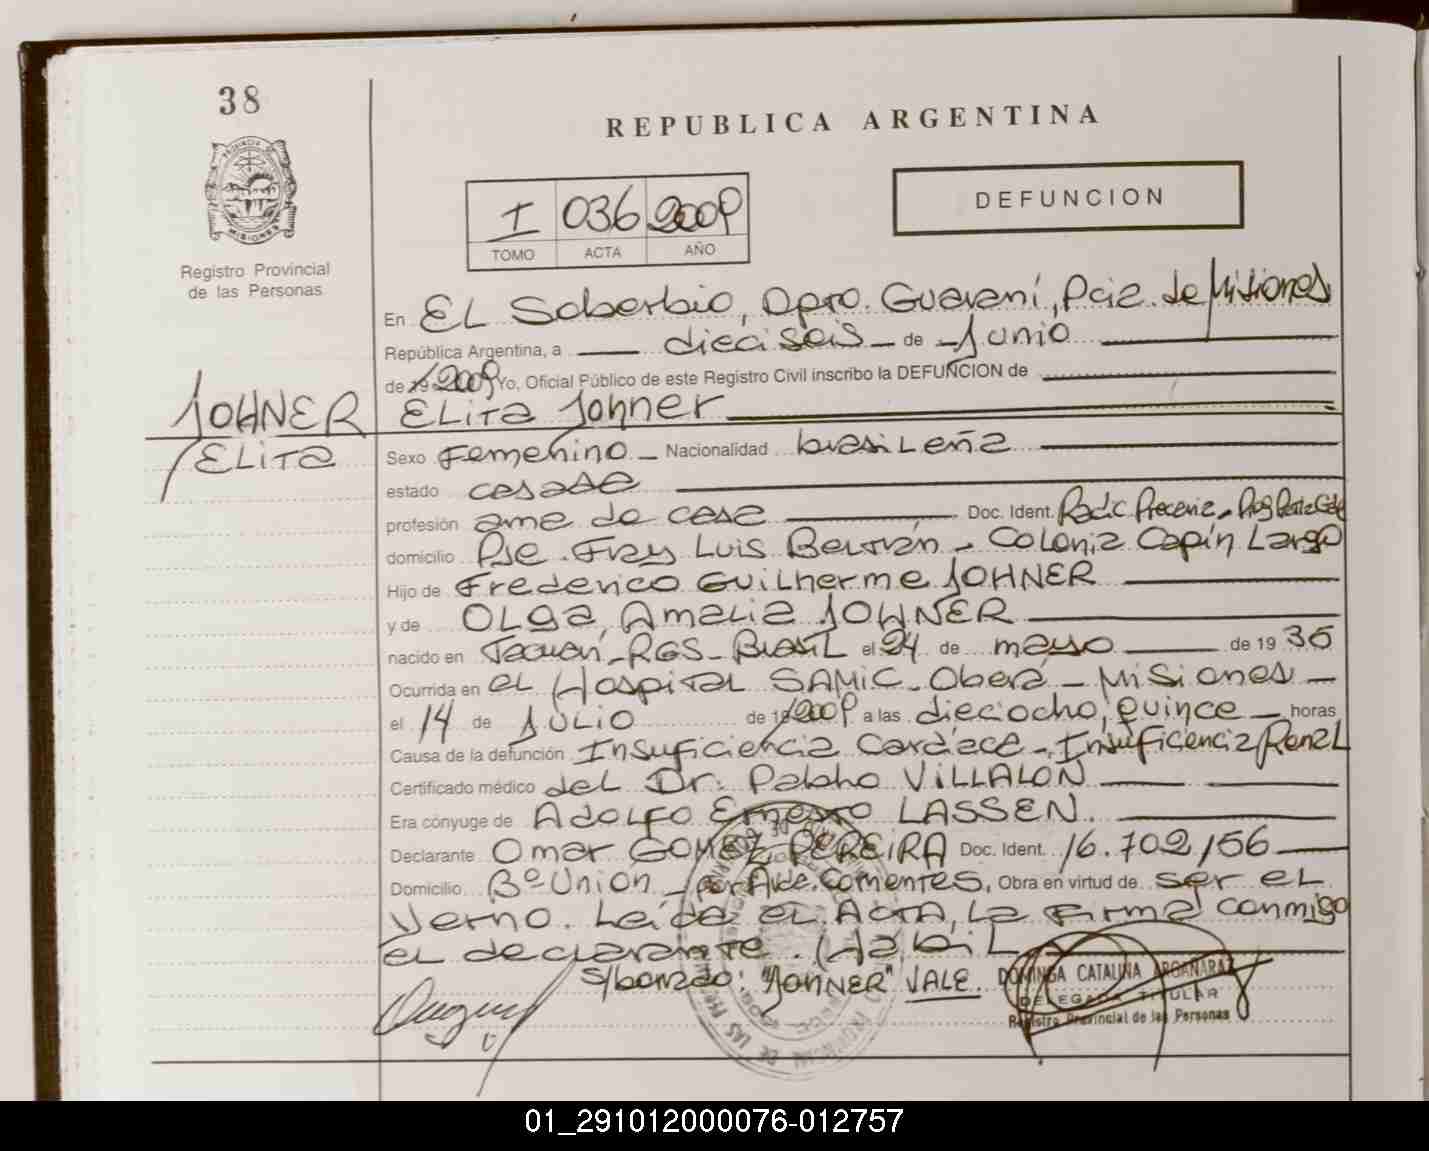 38
REPUBLICA ARGENTINA
PROVINCIA DE
MISIONES
DEFUNCION
I 036 2009
TOMO ACTA AÑO
Registro Provincial
de las Personas
En EL Soberbio, Dpto. Guaraní, Pcia. de Misiones
República Argentina, a dieciseis de Junio
de 19 2009 Yo, Oficial Público de este Registro Civil inscribo la DEFUNCION de
JOHNER
ELITA
ELita Johner
Sexo Femenino Nacionalidad brasileña
estado casada
profesión ama de casa Doc. Ident. Radic. Precaria
domicilio Pje. Fray Luis Beltrán - Colonia Capín Largo
Hijo de Frederico Guilherme JOHNER
y de OLga Amalia JOHNER
nacido en RGS - Brasil el 24 de mayo de 19 36
Ocurrida en el Hospital SAMIC - Oberá - Misiones
el 14 de JULIO de 19 2009 a las dieciocho, quince horas
Causa de la defunción Insuficiencia Cardíaca - Insuficiencia Renal
Certificado médico del Dr. Pablo VILLALON
Era cónyuge de Adolfo Ernesto LASSEN.
Declarante Omar GOMEZ PEREIRA Doc. Ident. 16.702.156
Domicilio Bº Union - por Avda. Corrientes. Obra en virtud de ser el
Yerno. Leída el ACTA, la Firma conmigo
el declarante. (Habil
S/borrado: "JOHNER" VALE.
DOMINGA CATALINA ARGAÑARAZ
DELEGADA TITULAR
Registro Provincial de las Personas
01_291012000076-012757